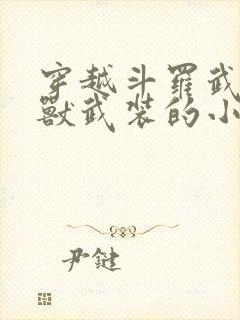 穿越斗羅武
獸武裝的小
尹鍵